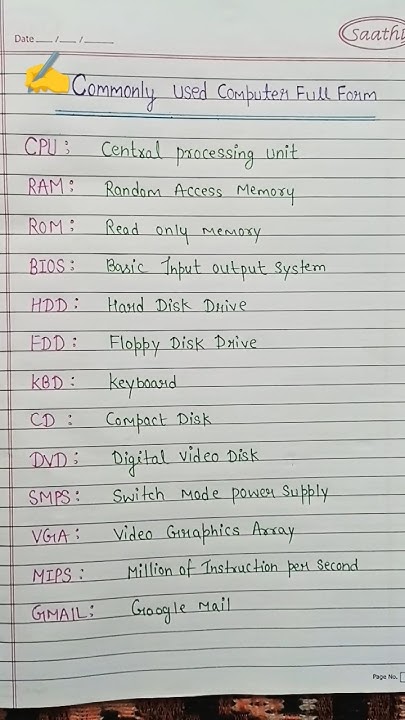 Saathi
Date __/__/____
Commonly used Computer Full Form
CPU: Central processing unit
RAM: Random Access Memory
ROM: Read only Memory
BIOS: Basic Input output System
HDD: Hard Disk Drive
FDD: Floppy Disk Drive
KBD: Keyboard
CD: Compact Disk
DVD: Digital Video Disk
SMPS: Switch Mode power Supply
VGA: Video Graphics Array
MIPS: Million of Instruction per Second
GMAIL: Google Mail
Page No.